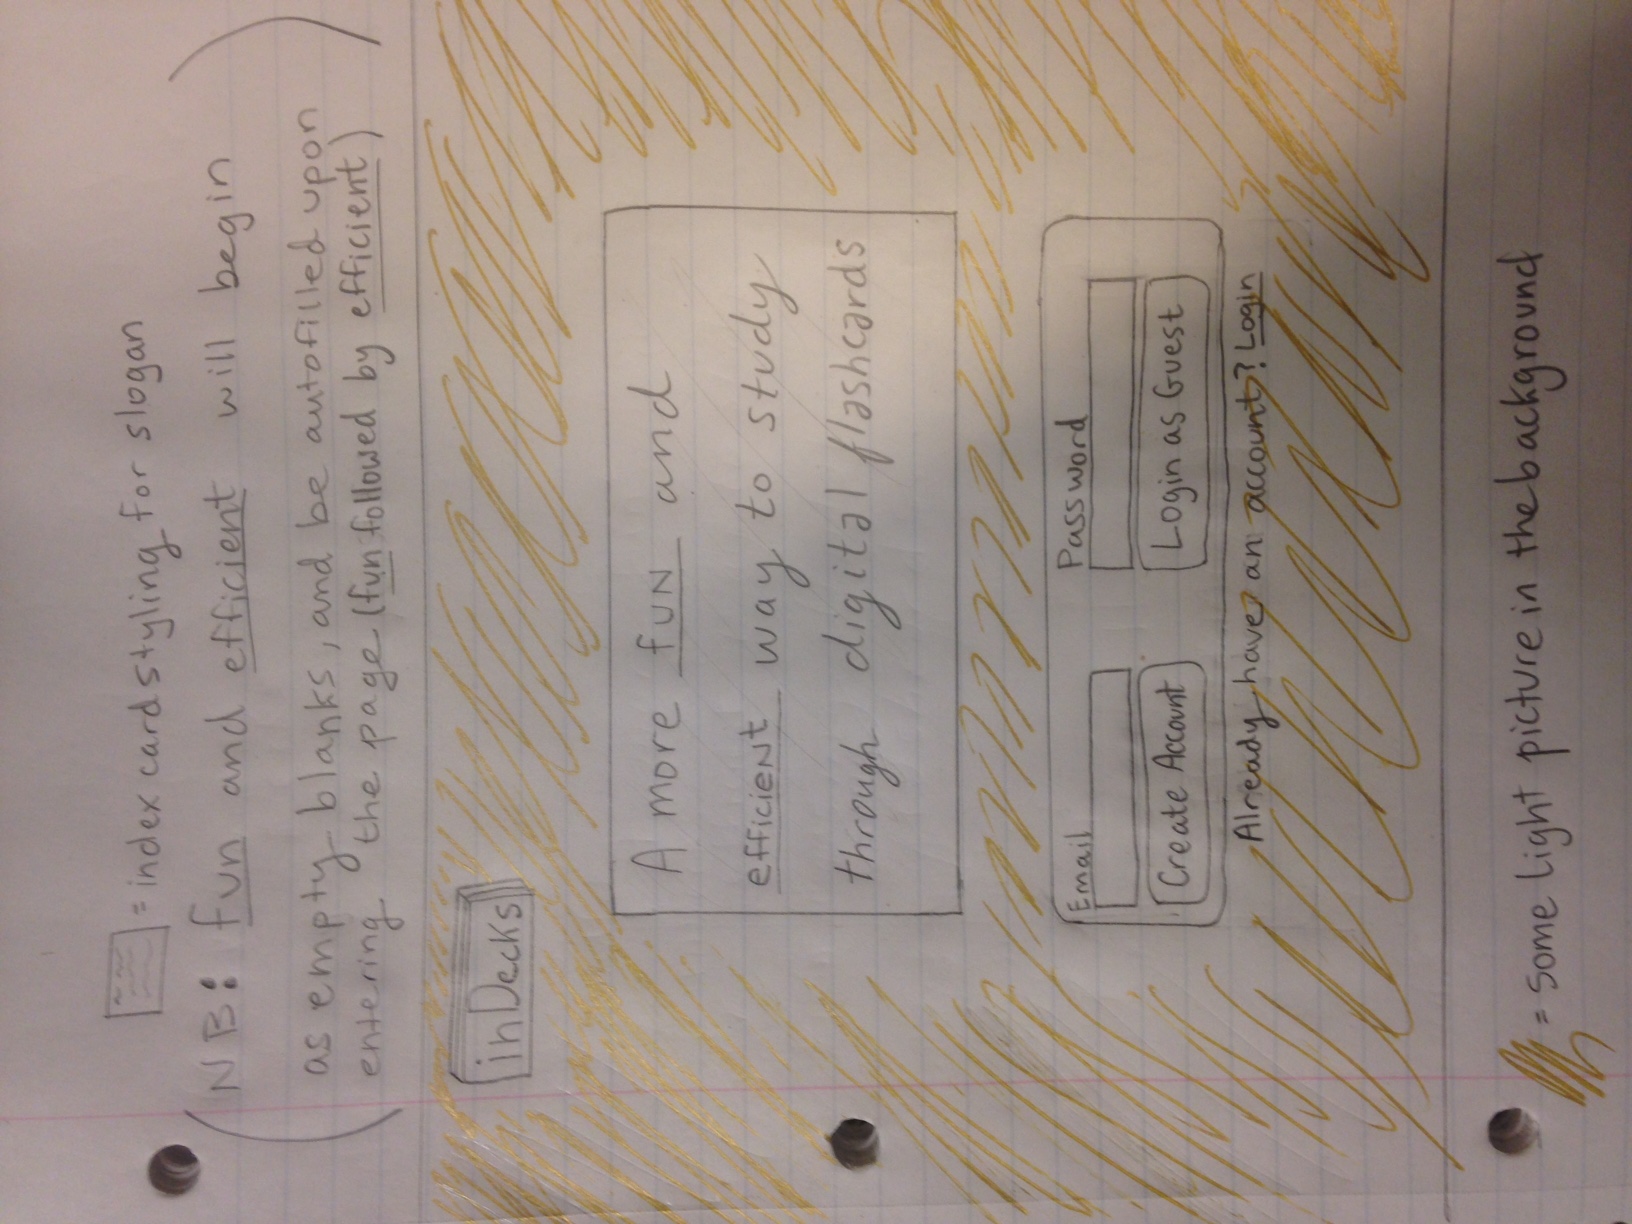 = index card styling for slogan
(NB: fun and efficient will begin
as empty blanks, and be autofilled upon
entering the page (fun followed by efficient))
inDecks
A more fun and
efficient way to study
through digital flashcards
Email Password
Create Account Login as Guest
Already have an account? Login
= some light picture in the background